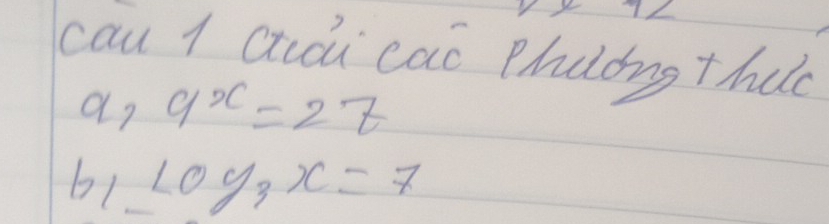 câu 1 Giải các Phương thức
a, 9x = 27
b, Log3 x = 7